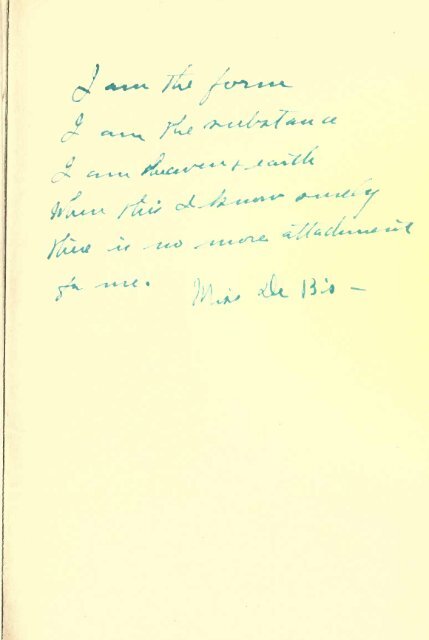 I am the form
I am the substance
I am heaven + earth
When this I know surely
there is no more attachment
for me. Miss De Bis –